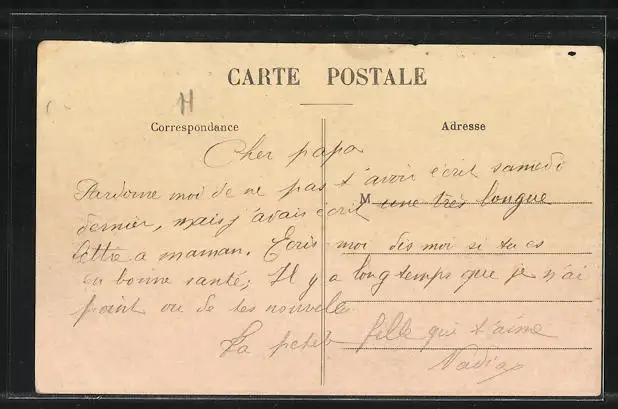 CARTE POSTALE
H
Correspondance
Adresse
Cher papa
Pardonne moi de ne pas t'avoir écrit samedi
dernier, mais j'avais écrit M une très longue
lettre a maman. Ecris moi dis moi si tu es
en bonne santé; Il y a longtemps que je n'ai
point ou de tes nouvelle
Ta petite fille qui t'aime
Nadia